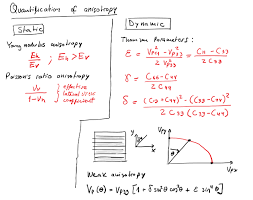 Quantification of anisotropy
Static
Young modulus anisotropy
Eh / Ev ; Eh > Ev
Poisson's ratio anisotropy
Vv / 1-Vh } effective lateral stress coefficient
Dynamic
Thomsen Parameters:
ε = (Vp90² - Vp0²) / 2 Vp0² = (C11 - C33) / 2 C33
γ = (C66 - C44) / 2 C44
δ = ((C13 + C44)² - (C33 - C44)²) / 2 C33 (C33 - C44)
y
x
Vpy
θ
Vpx
Weak anisotropy
Vp(θ) = Vp0 [1 + δ sin²θ cos²θ + ε sin⁴θ]